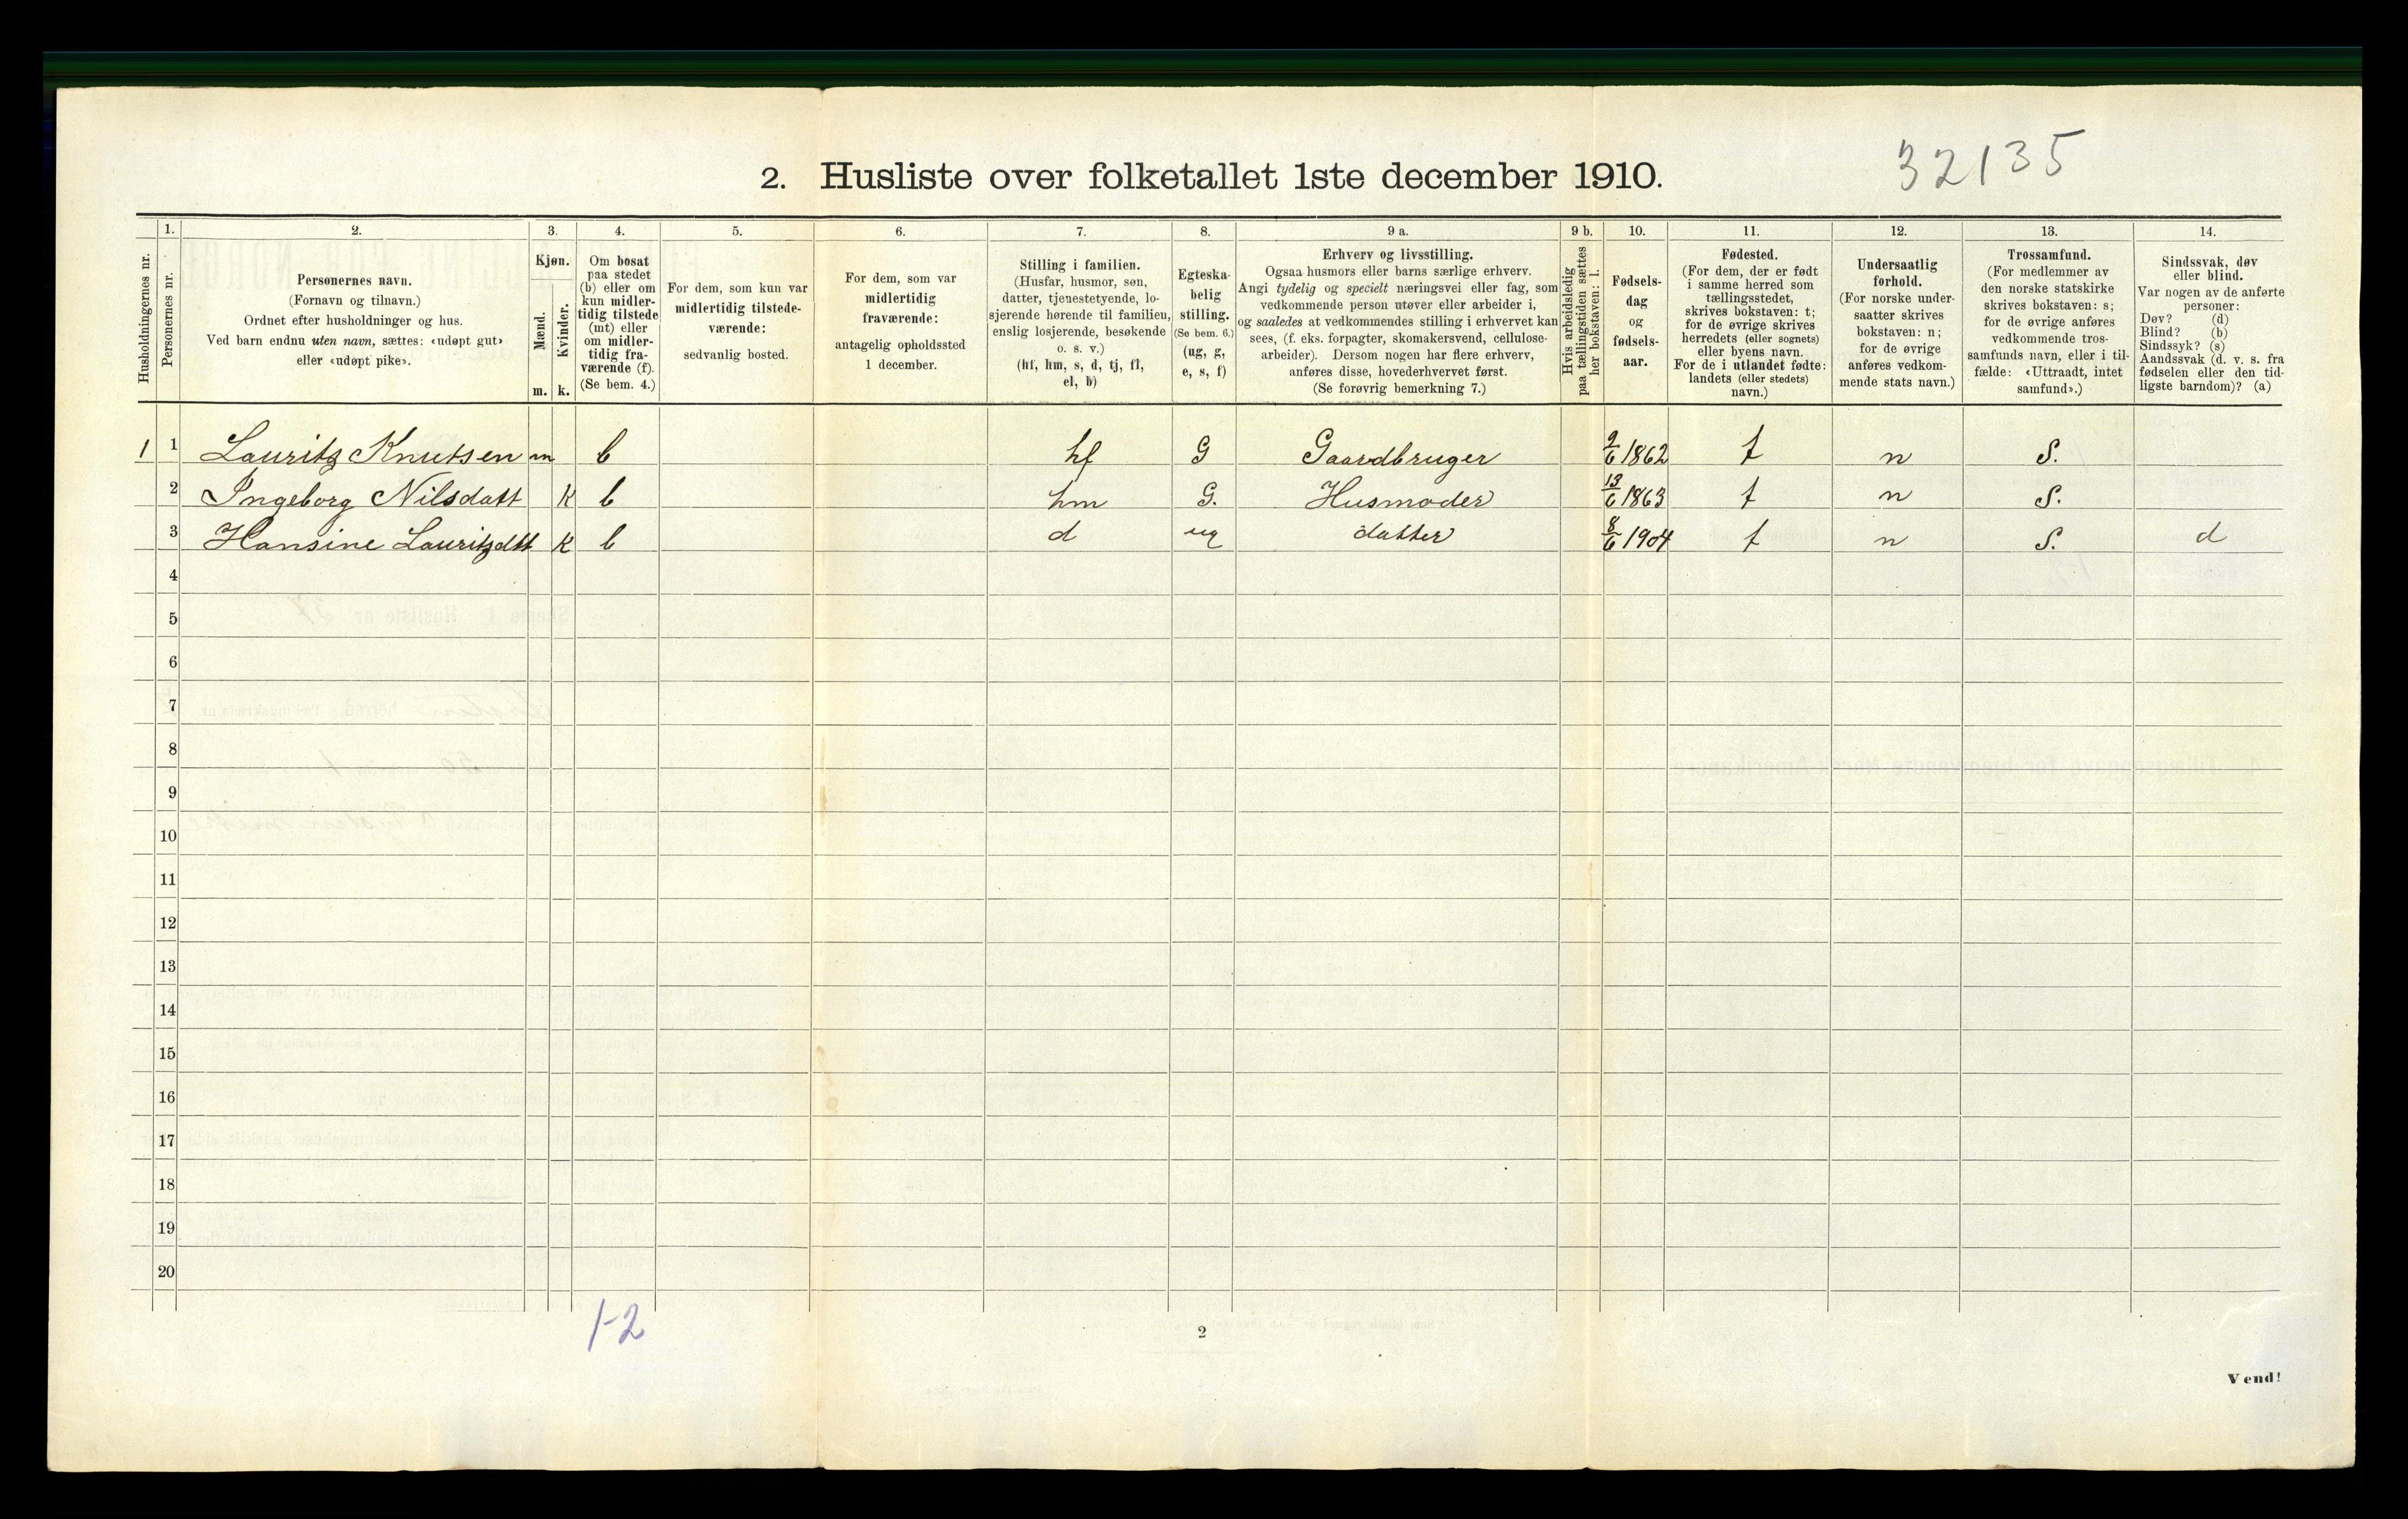 32135
2. Husliste over folketallet 1ste december 1910.
Husholdningernes nr.
1.
Personernes nr.
2.
Personernes navn.
(Fornavn og tilnavn.)
Ordnet efter husholdninger og hus.
Ved barn endnu uten navn, sættes: «udøpt gut»
eller «udøpt pike».
3.
Kjøn.
Mænd.
Kvinder.
m. k.
4.
Om bosat
paa stedet
(b) eller om
kun midler-
tidig tilstede
(mt) eller
om midler-
tidig fra-
værende (f).
(Se bem. 4.)
5.
For dem, som kun var
midlertidig tilstede-
værende:
sedvanlig bosted.
6.
For dem, som var
midlertidig
fraværende:
antagelig opholdssted
1 december.
7.
Stilling i familien.
(Husfar, husmor, søn,
datter, tjenestetyende, lo-
sjerende hørende til familien,
enslig losjerende, besøkende
o. s. v.)
(hf, hm, s, d, tj, fl,
el, b)
8.
Egteska-
belig
stilling.
(Se bem. 6.)
(ug, g,
e, s, f)
9 a.
Erhverv og livsstilling.
Ogsaa husmors eller barns særlige erhverv.
Angi tydelig og specielt næringsvei eller fag, som
vedkommende person utøver eller arbeider i,
og saaledes at vedkommendes stilling i erhvervet kan
sees, (f. eks. forpagter, skomakersvend, cellulose-
arbeider). Dersom nogen har flere erhverv,
anføres disse, hovederhvervet først.
(Se forøvrig bemerkning 7.)
9 b.
Hvis arbeidsledig
paa tællingstiden sættes
her bokstaven: l.
10.
Fødsels-
dag
og
fødsels-
aar.
11.
Fødested.
(For dem, der er født
i samme herred som
tællingsstedet,
skrives bokstaven: t;
for de øvrige skrives
herredets (eller sognets)
eller byens navn.
For de i utlandet fødte:
landets (eller stedets)
navn.)
12.
Undersaatlig
forhold.
(For norske under-
saatter skrives
bokstaven: n;
for de øvrige
anføres vedkom-
mende stats navn.)
13.
Trossamfund.
(For medlemmer av
den norske statskirke
skrives bokstaven: s;
for de øvrige anføres
vedkommende tros-
samfunds navn, eller i til-
fælde: «Uttraadt, intet
samfund».)
14.
Sindssvak, døv
eller blind.
Var nogen av de anførte
personer:
Døv? (d)
Blind? (b)
Sindssyk? (s)
Aandssvak (d. v. s. fra
fødselen eller den tid-
ligste barndom)? (a)
1 1 Lauritz Knutsen m b hf G Gaardbruger 9/6 1862 t n S.
2 Ingeborg Nilsdatt k b hm G. Husmoder 13/6 1863 t n S.
3 Hansine Lauritzdtt k b d ug datter 8/6 1904 t n S. d
4
5
6
7
8
9
10
11
12
13
14
15
16
17
18
19
20
1-2
2
Vend!